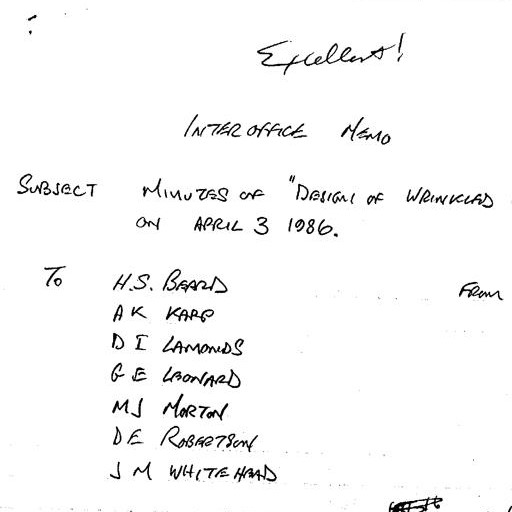 Excellent!
INTEROFFICE MEMO
SUBJECT MINUTES OF "DESIGN OF WRINKLED
ON APRIL 3 1986.
TO H.S. BEARD FROM
A K KARP
D I LAMONDS
G E LEONARD
M J MORTON
D E ROBERTSON
J M WHITEHEAD